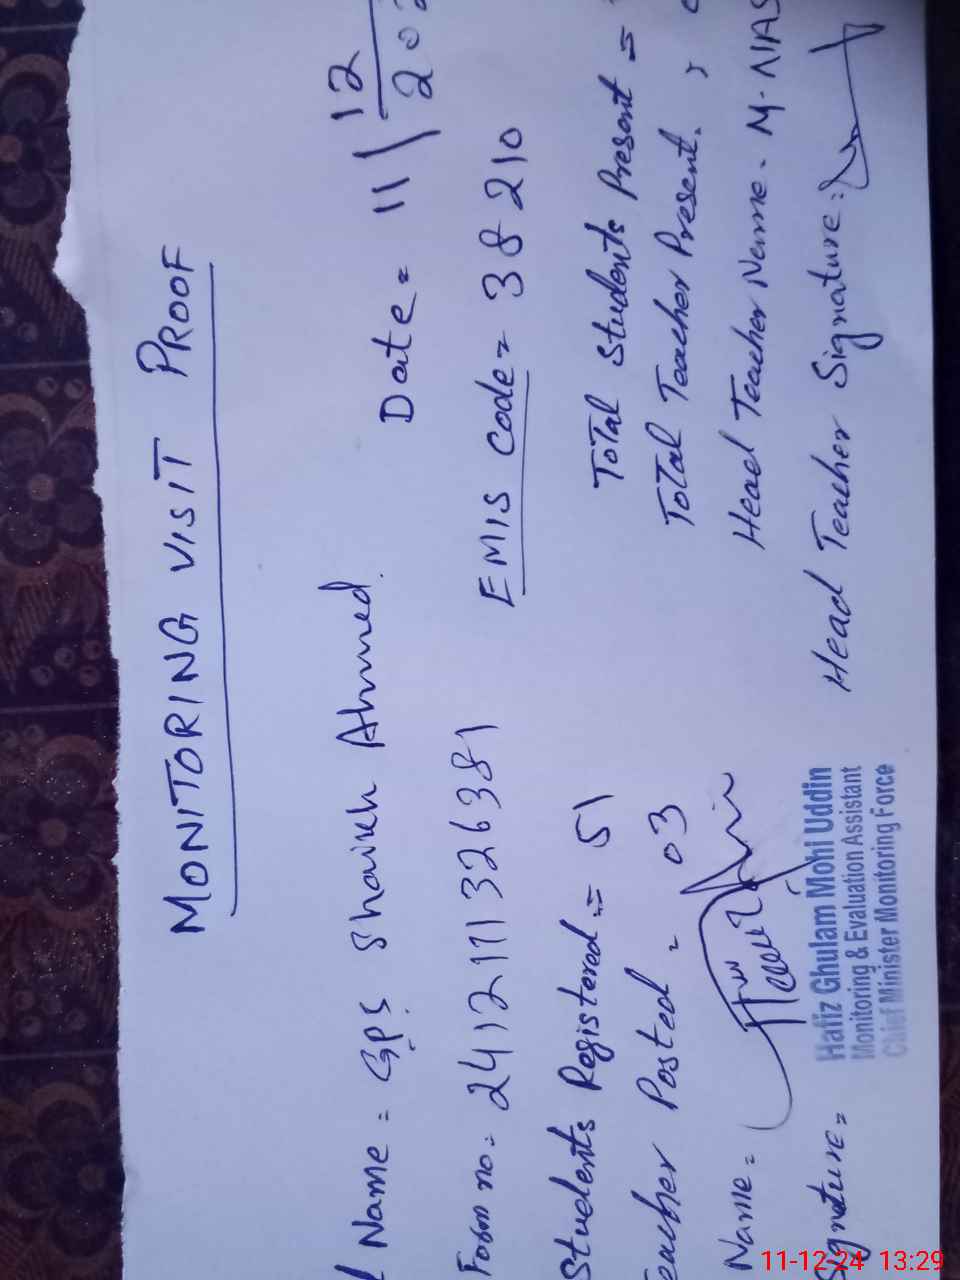 MONITORING VISIT PROOF
Name = GPS Shaikh Ahmed.
Date = 11/12/202
Form no = 2412111326381
EMIS Code = 38210
Students Registered = 51
Total Students Present =
Teacher Posted = 03
Total Teacher Present =
Name =
Head Teacher Name = M. NIAS
Signature =
Head Teacher Signature =
Hafiz Ghulam Mohi Uddin
Monitoring & Evaluation Assistant
Chief Minister Monitoring Force
11-12-24 13:29